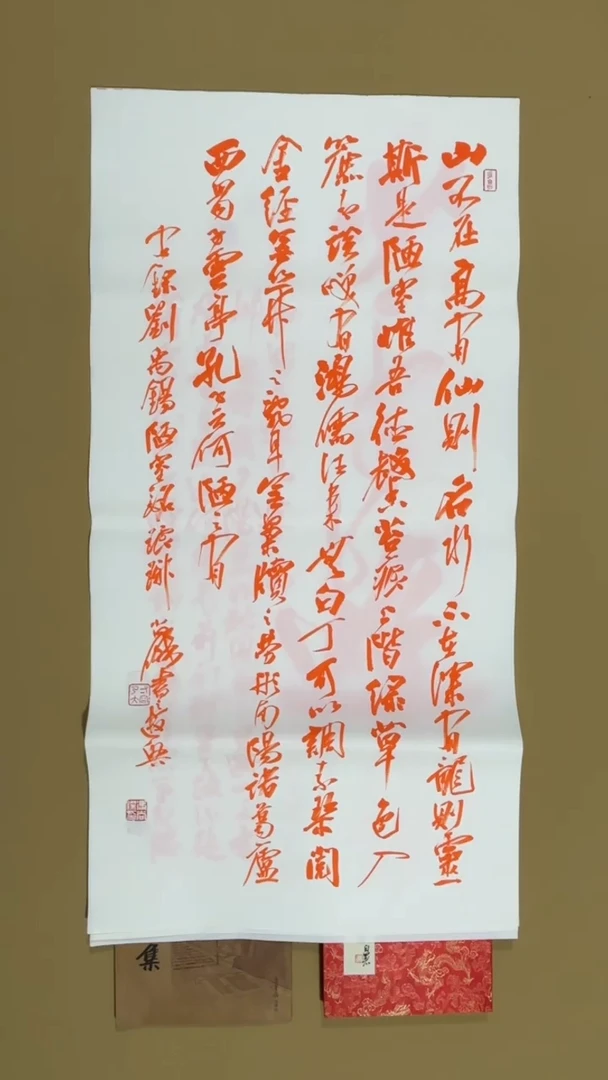 山不在高有仙則名水不在深有龍則靈
斯是陋室惟吾德馨苔痕上階綠草色入
簾青談笑有鴻儒往來無白丁可以調素琴閱
金經無絲竹之亂耳無案牘之勞形南陽諸葛廬
西蜀子雲亭孔子云何陋之有
錄劉禹錫陋室銘書
集